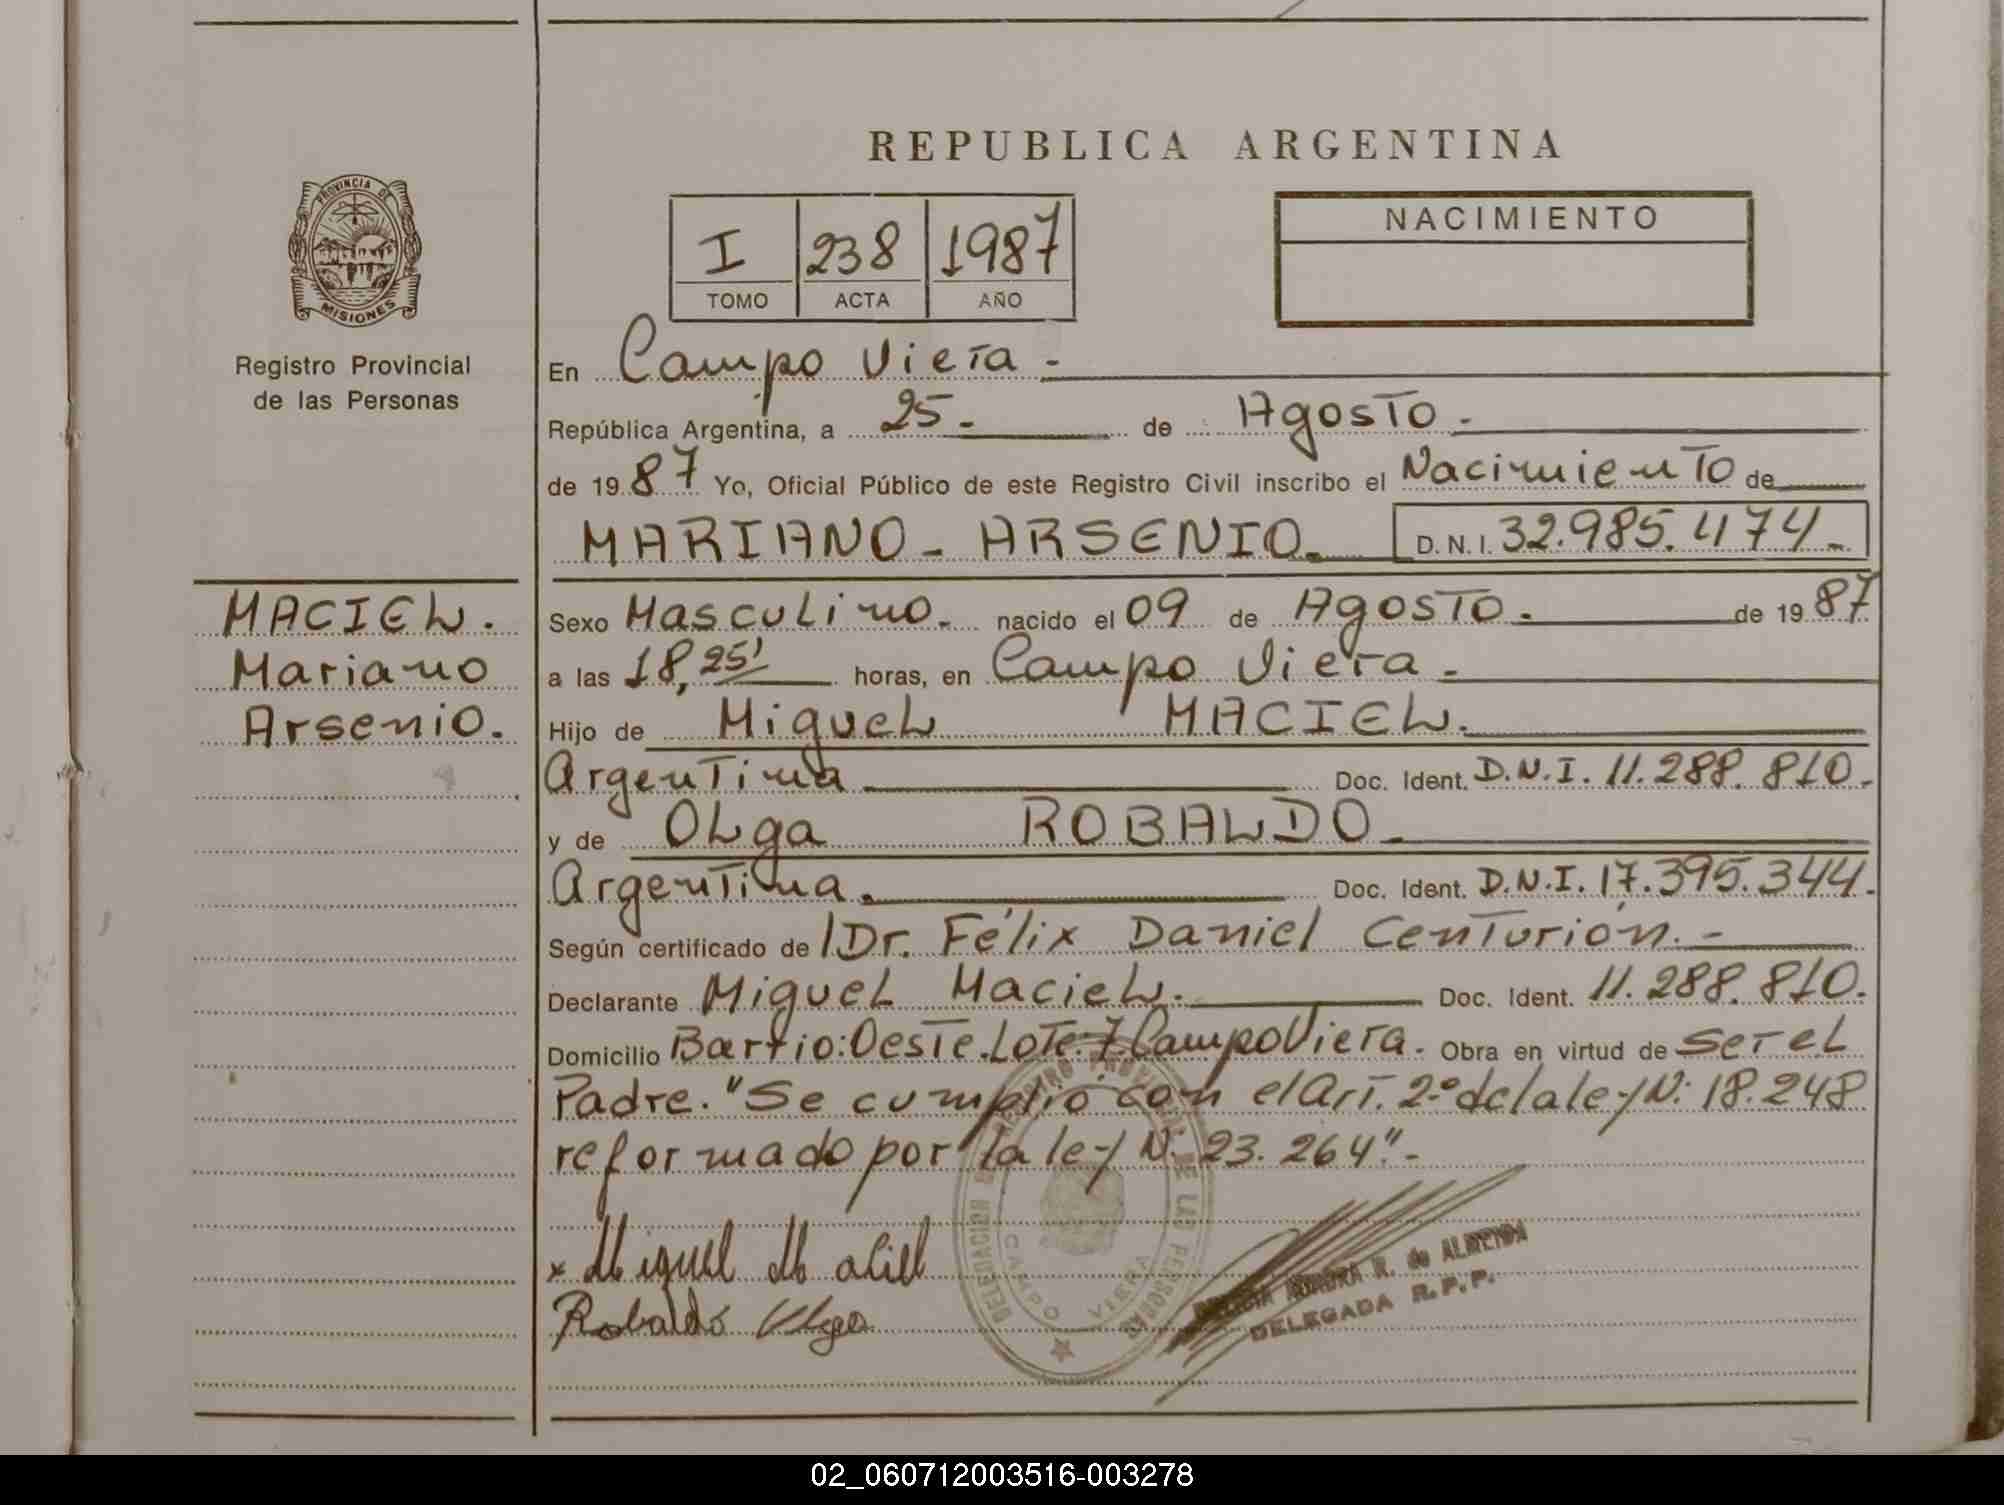 REPUBLICA ARGENTINA
PROVINCIA DE
MISIONES
Registro Provincial
de las Personas
I 238 1987
TOMO ACTA AÑO
NACIMIENTO
En Campo Viera -
República Argentina, a 25- de Agosto -
de 1987 Yo, Oficial Público de este Registro Civil inscribo el Nacimiento de
MARIANO - ARSENIO. D.N.I. 32.985.474-
MACIEL.
Mariano
Arsenio.
Sexo Masculino. nacido el 09 de Agosto. de 1987
a las 18,25' horas, en Campo Viera -
Hijo de Miguel MACIEL.
Argentina Doc. Ident. D.N.I. 11.288.810.
y de Olga ROBALDO.
Argentina. Doc. Ident. D.N.I. 17.395.344.
Según certificado de Dr. Félix Daniel Centurión. -
Declarante Miguel Maciel. Doc. Ident. 11.288.810.
Domicilio Barrio: Oeste. Lote: 7. Campo Viera. Obra en virtud de ser el
Padre. "Se cumplió con el Art. 2º de la ley N: 18.248
reformado por la ley N: 23.264". -
x Miguel Maciel
Robaldo Olga
DELEGACION REGISTRO PROVINCIAL DE LAS PERSONAS
CAMPO VIERA
R. de ALMEIDA
DELEGADA R.P.P.
02_060712003516-003278